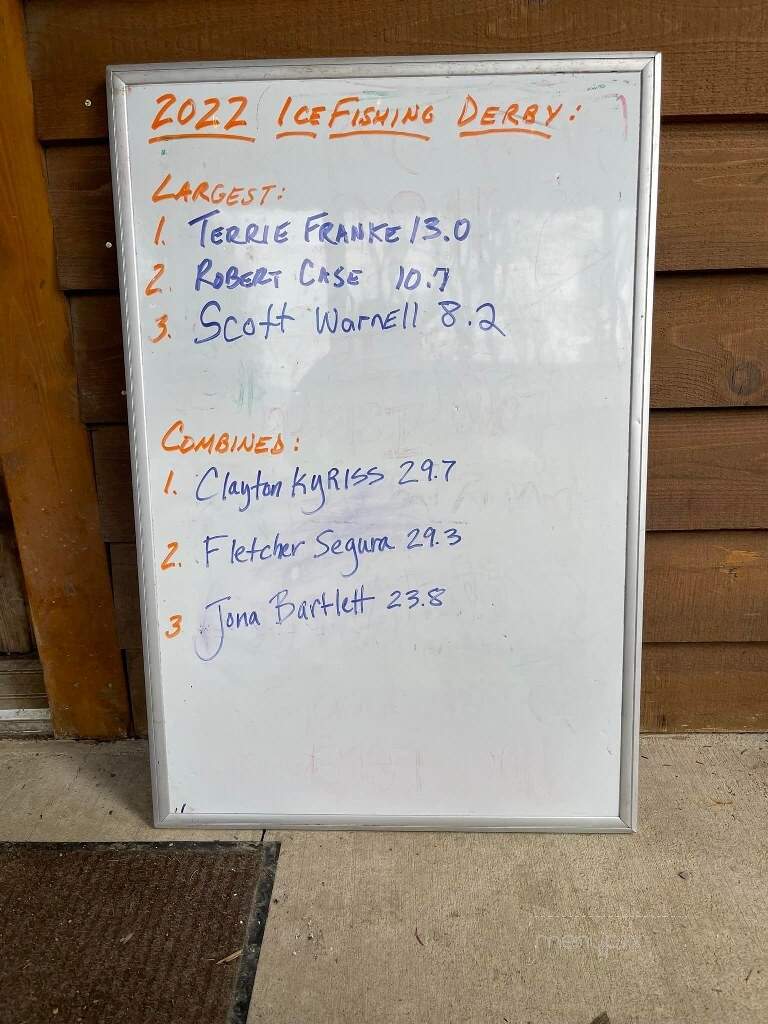 2022 ICE FISHING DERBY:
LARGEST:
1. TERRIE FRANKE 13.0
2. ROBERT CASE 10.7
3. Scott WarnEll 8.2
COMBINED:
1. Clayton KyRISS 29.7
2. Fletcher Segura 29.3
3 Jona Bartlett 23.8
menupix